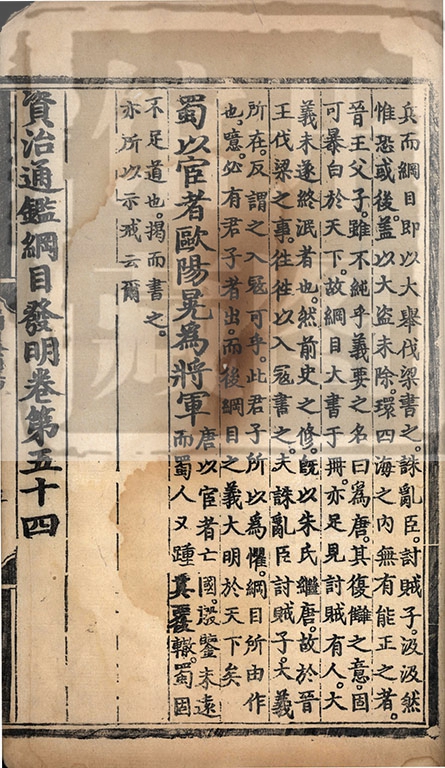 兵而綱目即以大舉伐梁書之。誅亂臣。討賊子。汲汲然
惟恐或後。蓋以大盜未除。環四海之內。無有能正之者。
晉王父子。雖不純乎義。要之名曰為唐。其復讎之意。固
可暴白於天下。故綱目大書于冊。亦足見討賊有人。大
義未遂終泯者也。然前史之修。旣以朱氏繼唐。故於晉
王伐梁之事。往往以入寇書之。夫誅亂臣討賊子。大義
所在。反謂之入寇可乎。此君子所以為懼。綱目所由作
也。噫。必有君子者出。而後綱目之義大明於天下矣
蜀以宦者歐陽晃為將軍
唐以宦者亡國。殷鑒未遠
而蜀人又踵其覆轍。蜀固
不足道也。揭而書之。
亦所以示戒云爾
資治通鑑綱目發明卷第五十四